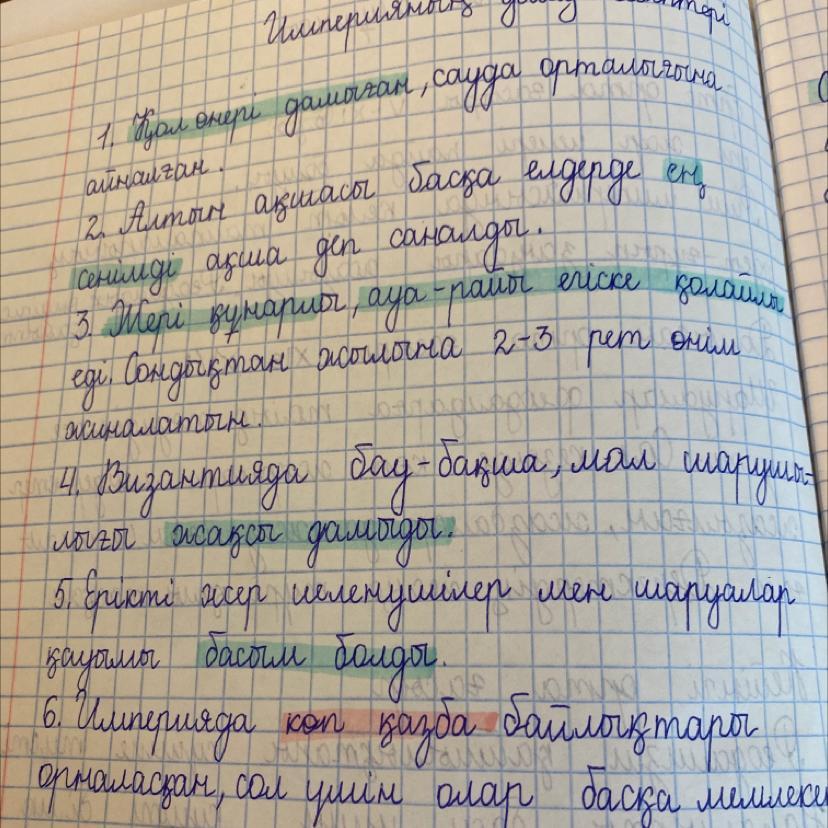 Империяның даму
1. Қол өнері дамыған, сауда орталығына
айналған.
2. Алтын ақшасы басқа елдерде ең
сенімді ақша деп саналды.
3. Жері құнарлы, ауа-райы егіске қолайлы
еді. Сондықтан жылына 2-3 рет өнім
жиналатын.
4. Византияда бау-бақша, мал шаруашы-
лығы жақсы дамыды.
5. Ерікті жер иеленушілер мен шаруалар
қауымы басым болды.
6. Империяда көп қазба байлықтары
орналасқан, сол үшін олар басқа мемлеке